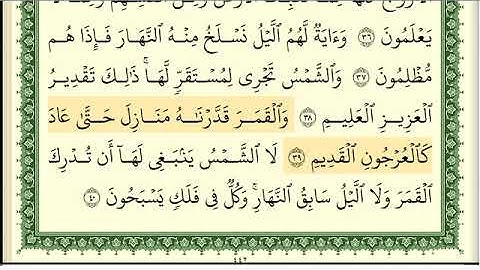 يَعْلَمُونَ ٣٦ وَءَايَةٌ لَّهُمُ ٱلَّيْلُ نَسْلَخُ مِنْهُ ٱلنَّهَارَ فَإِذَا هُم
مُّظْلِمُونَ ٣٧ وَٱلشَّمْسُ تَجْرِى لِمُسْتَقَرٍّ لَّهَا ۚ ذَٰلِكَ تَقْدِيرُ
ٱلْعَزِيزِ ٱلْعَلِيمِ ٣٨ وَٱلْقَمَرَ قَدَّرْنَٰهُ مَنَازِلَ حَتَّىٰ عَادَ
كَٱلْعُرْجُونِ ٱلْقَدِيمِ ٣٩ لَا ٱلشَّمْسُ يَنۢبَغِى لَهَآ أَن تُدْرِكَ
ٱلْقَمَرَ وَلَا ٱلَّيْلُ سَابِقُ ٱلنَّهَارِ ۚ وَكُلٌّ فِى فَلَكٍ يَسْبَحُونَ ٤٠
٤٤٢